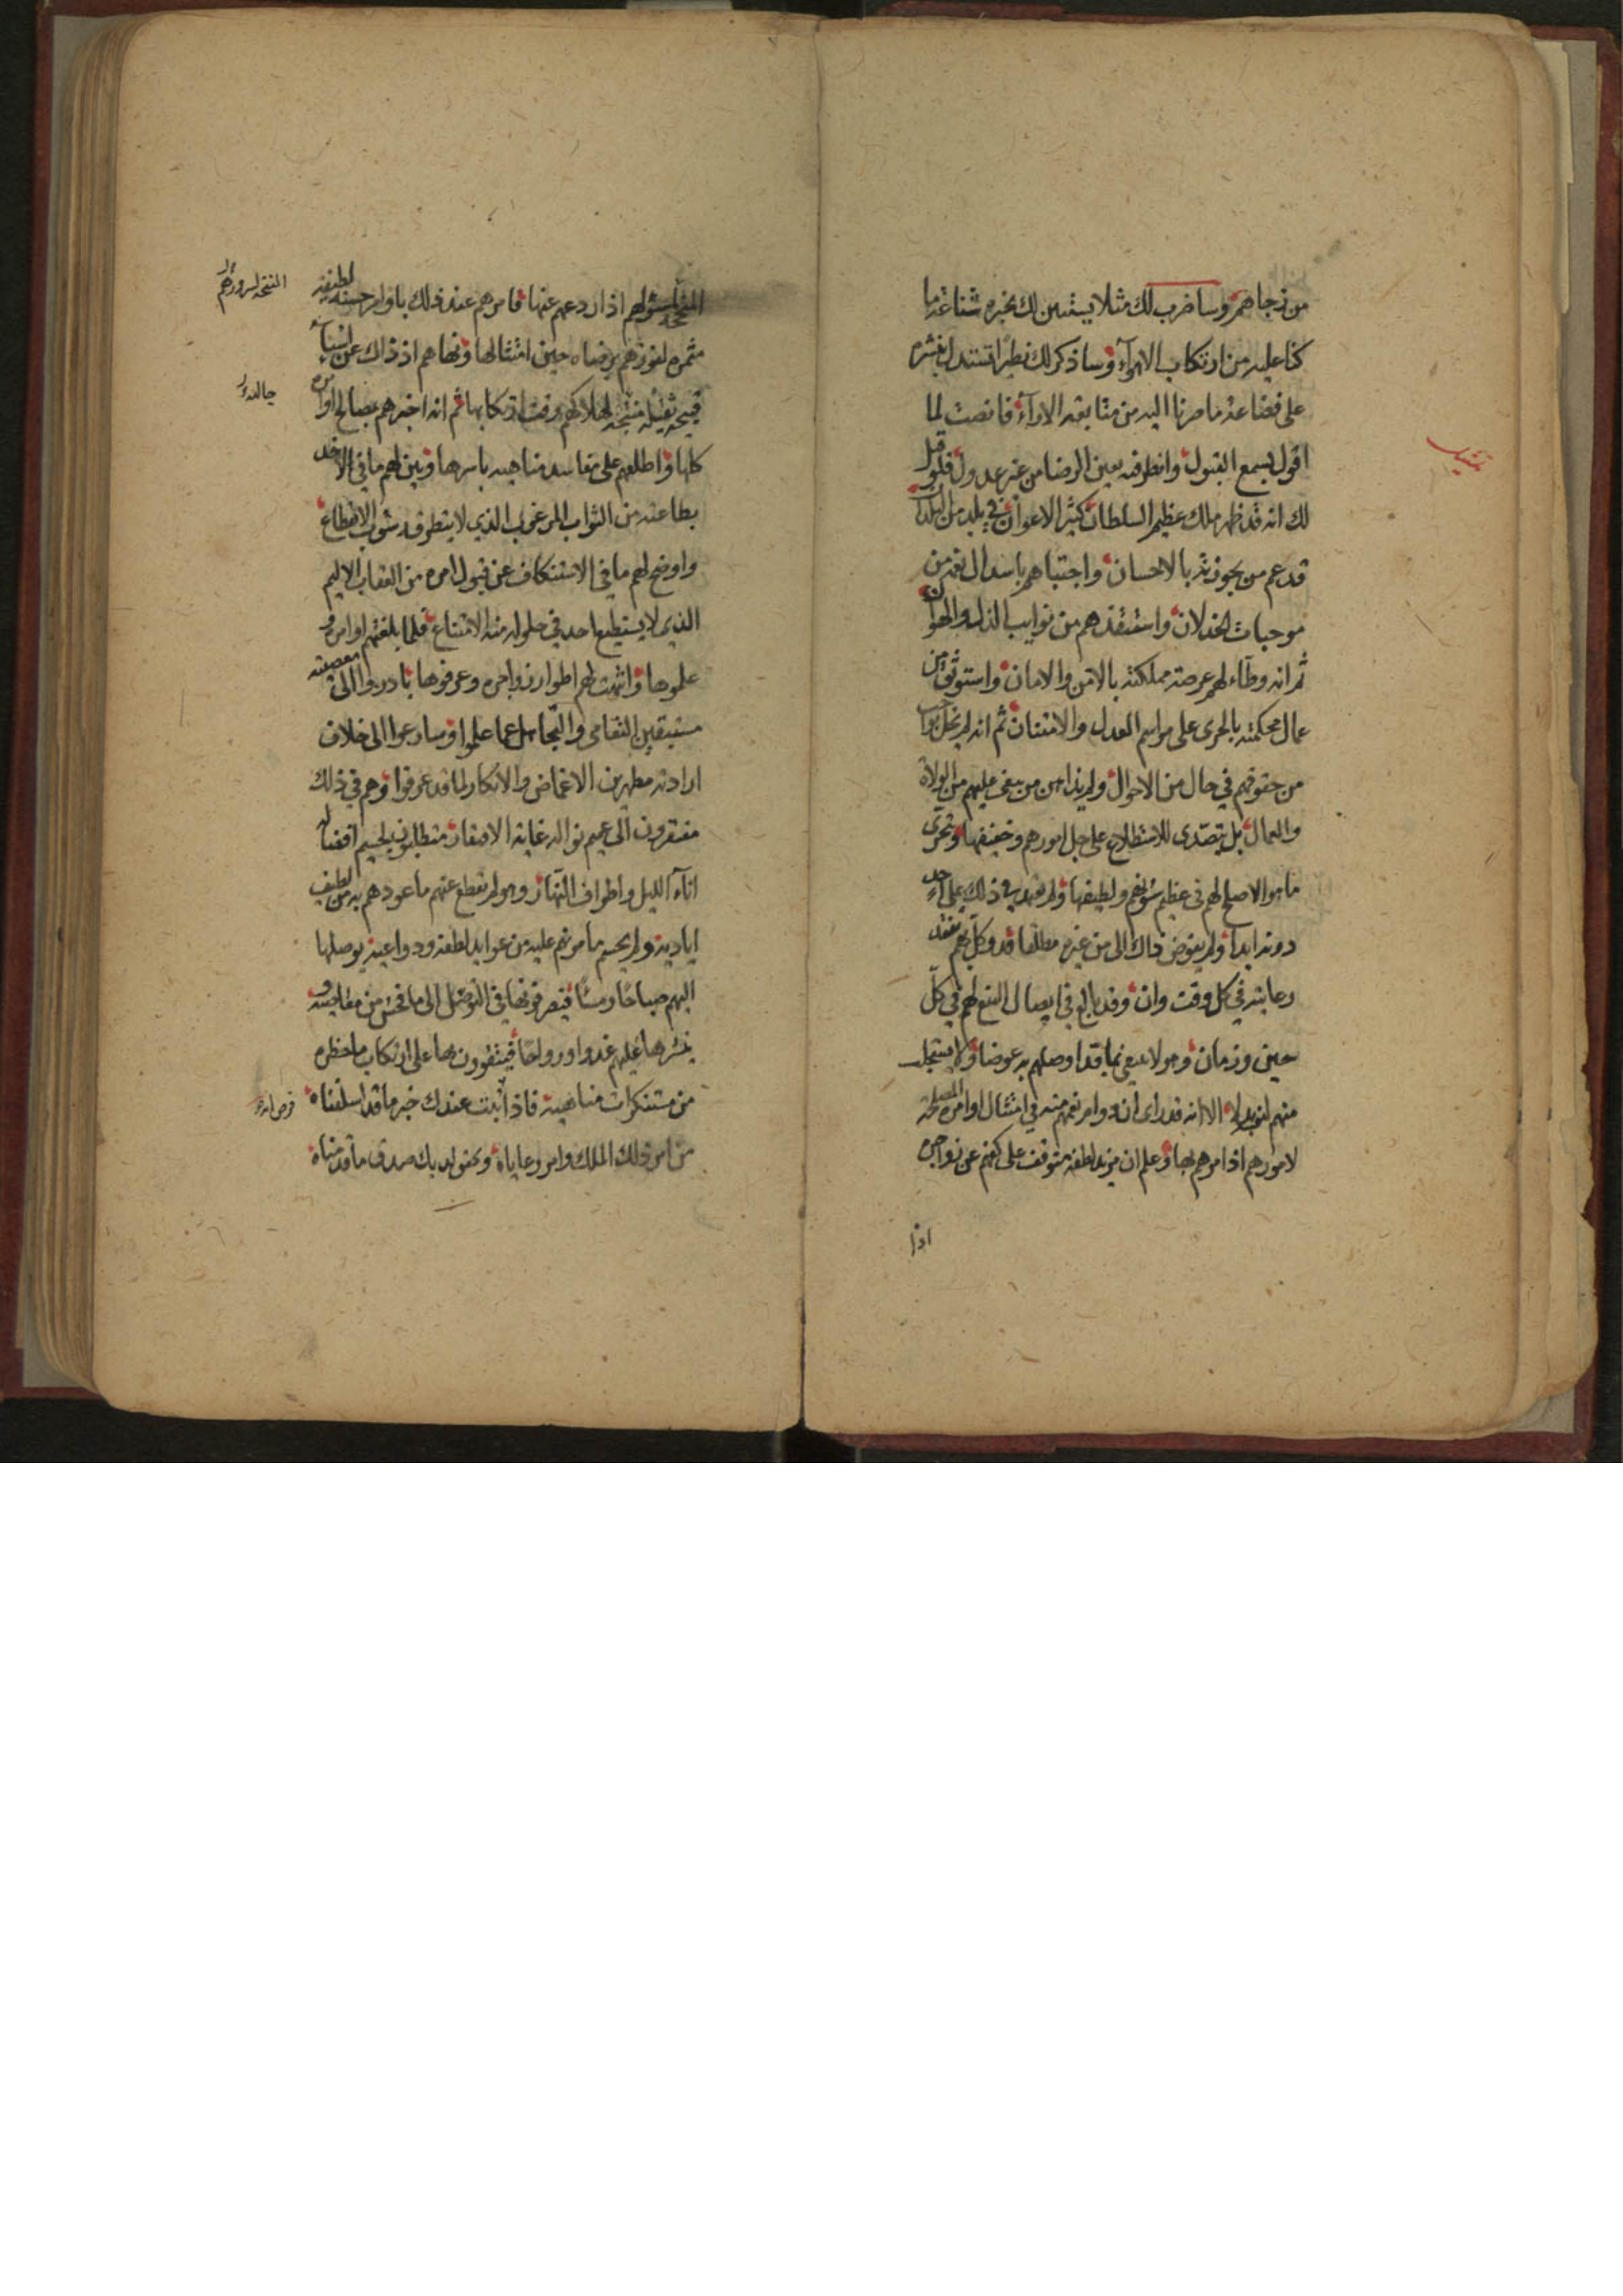 من زجاهم وساضرب لك مثلا يستبين لك بخبره شناعة ما
كنا عليه من ارتكاب الاهوآء وساذكر لك نظيرا تستدل بنشره
على فضاعة ما صرنا اليه من متابعة الارآء فانصت لما
اقول بسمع القبول وانظر فيه بعين الرضا من غير عدول فلو قيل
لك انه قد ظهر ملك عظيم السلطان كثير الاعوان في بلد من البلدان
قد عم من بحوزته بالاحسان واجتباهم باسدال نعمه من
موجبات الخذلان واستنقذهم من نوايب الذل والهوان
ثم انه وطآء لهم عرصة مملكته بالامن والامان واستوثق من
عمال محكمته بالجرى على مراسم العدل والامتنان ثم انه لم يخل بواجب
من حقوقهم في حال من الاحوال ولم يداهن من يبغى عليهم من الولاة
والعمال بل يتصدى للاستطلاع على جل امورهم وخفيفها وتحرى
ما هوالاصلح لهم في عظيم شؤنهم ولطيفها ولم يعهد في ذلك على احد
دونه ابدآ ولم يفوض ذاك الى من غيره مطلقا قد وكل بهم
رعايته في كل وقت وان وقد بالغ في ايصال النفع لهم في كل
حين وزمان وهو لا يبغى بما قد اوصلهم به عوضا ولا يستجلب
منهم لنوبه الا انه قد راى ان دوام نعمهم منه في امتثال اوامره المصلحة
لامورهم اذا امرهم بها وعلم ان مزيد لطفه متوقف على كفهم عن زواجره
اذا
لشؤلهم اذا ردعهم عنها فامرهم عند ذلك باوامر حسنة لطيفة
مثمره لفوزهم برضاه حين امتثالها ونهاهم اذ ذاك عن اشيآء
قبيحه ثقيله منتجه لهلاكهم وقت ارتكابها ثم انه اخبرهم بمصالح اوامره
كلها واطلعهم على مفاسد مناهيه باسرها وبين لهم ما في الاخذ
بطاعته من الثواب المرغب الذي لا يتطرقه شوب الانقطاع
واوضح لهم ما في الاستنكاف عن قبول امره من العقاب الاليم
الذي لا يستطيع احد في حلوله منه الامتناع فلما بلغتهم اوامره و
علموها واثبتت لهم اطوار زواجره وعرفوها بادروا الى معصيته
مستيقنين التعامى والتجاهل عما علموا وسارعوا الى خلاف
ارادته مظهرين الاغماض والانكار لما قد عرفوا وهم في ذلك
مفتقرون الى عميم نواله غاية الافتقار متطلبون لجسيم افضاله
انآء الليل واطراف النهار وهو لم يقطع عنهم ما عودهم به من لطيف
اياديه ولم يحسم ما مرنهم عليه من عوايد لطفه ودواعيه يوصلها
اليهم صباحا ومسآ فيصرفونها في التوصل الى ما فحش من معاصيه و
ينشرها عليهم غدوا ورواحا فيتقوون بها على ارتكاب ما حظره
من مستنكرات مناهيه فاذا ثبت عندك خبر ما قد اسلفناه
من امر ذلك الملك وامر رعاياه وتحقق لديك صدق ما قدمناه